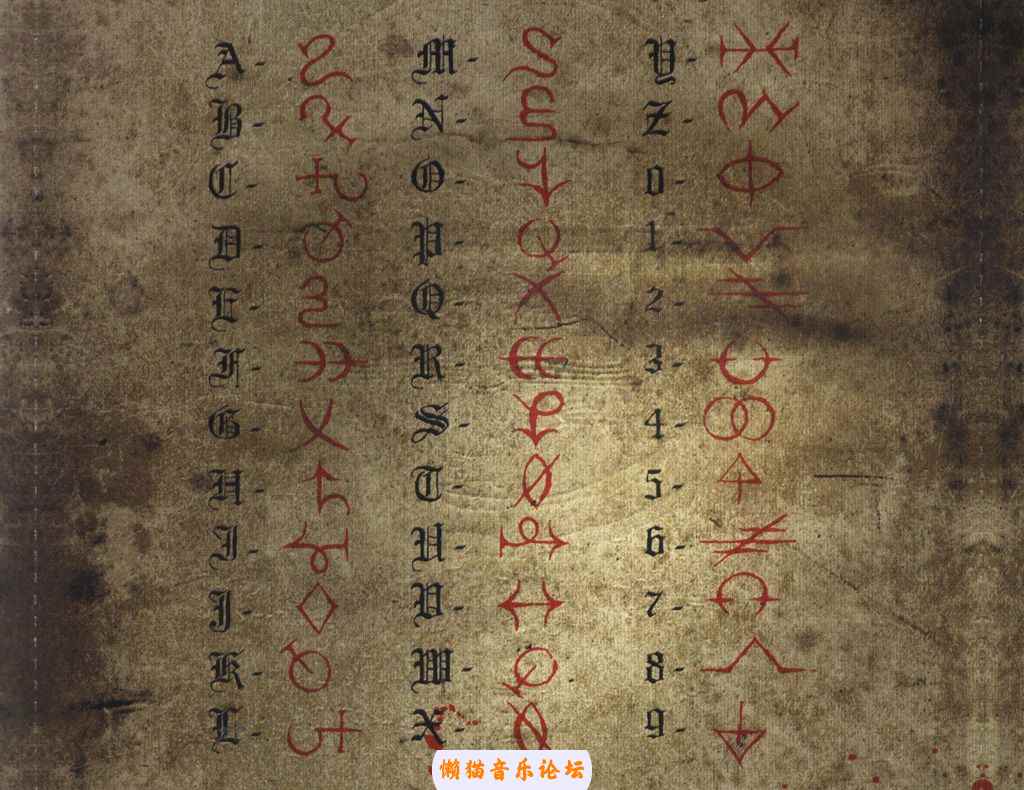 A-
B-
C-
D-
E-
F-
G-
H-
I-
J-
K-
L-
M-
N-
O-
P-
Q-
R-
S-
T-
U-
V-
W-
X-
Y-
Z-
0-
1-
2-
3-
4-
5-
6-
7-
8-
9-
懒猫音乐论坛